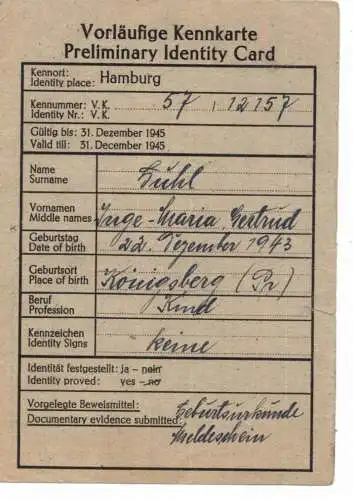 Vorläufige Kennkarte
Preliminary Identity Card
Kennort:
Identity place: Hamburg
Kennummer: V. K. 57, 12157
Identity Nr.: V. K.
Gültig bis: 31. Dezember 1945
Valid till: 31. Dezember 1945
Name
Surname
Vornamen
Middle names Inge-Maria Gertrud
Geburtstag
Date of birth 22. Dezember 1943
Geburtsort
Place of birth Königsberg (Pr)
Beruf
Profession Kind
Kennzeichen
Identity Signs keine
Identität festgestellt: ja – nein
Identity proved: yes – no
Vorgelegte Beweismittel: Geburtsurkunde
Documentary evidence submitted: Meldeschein